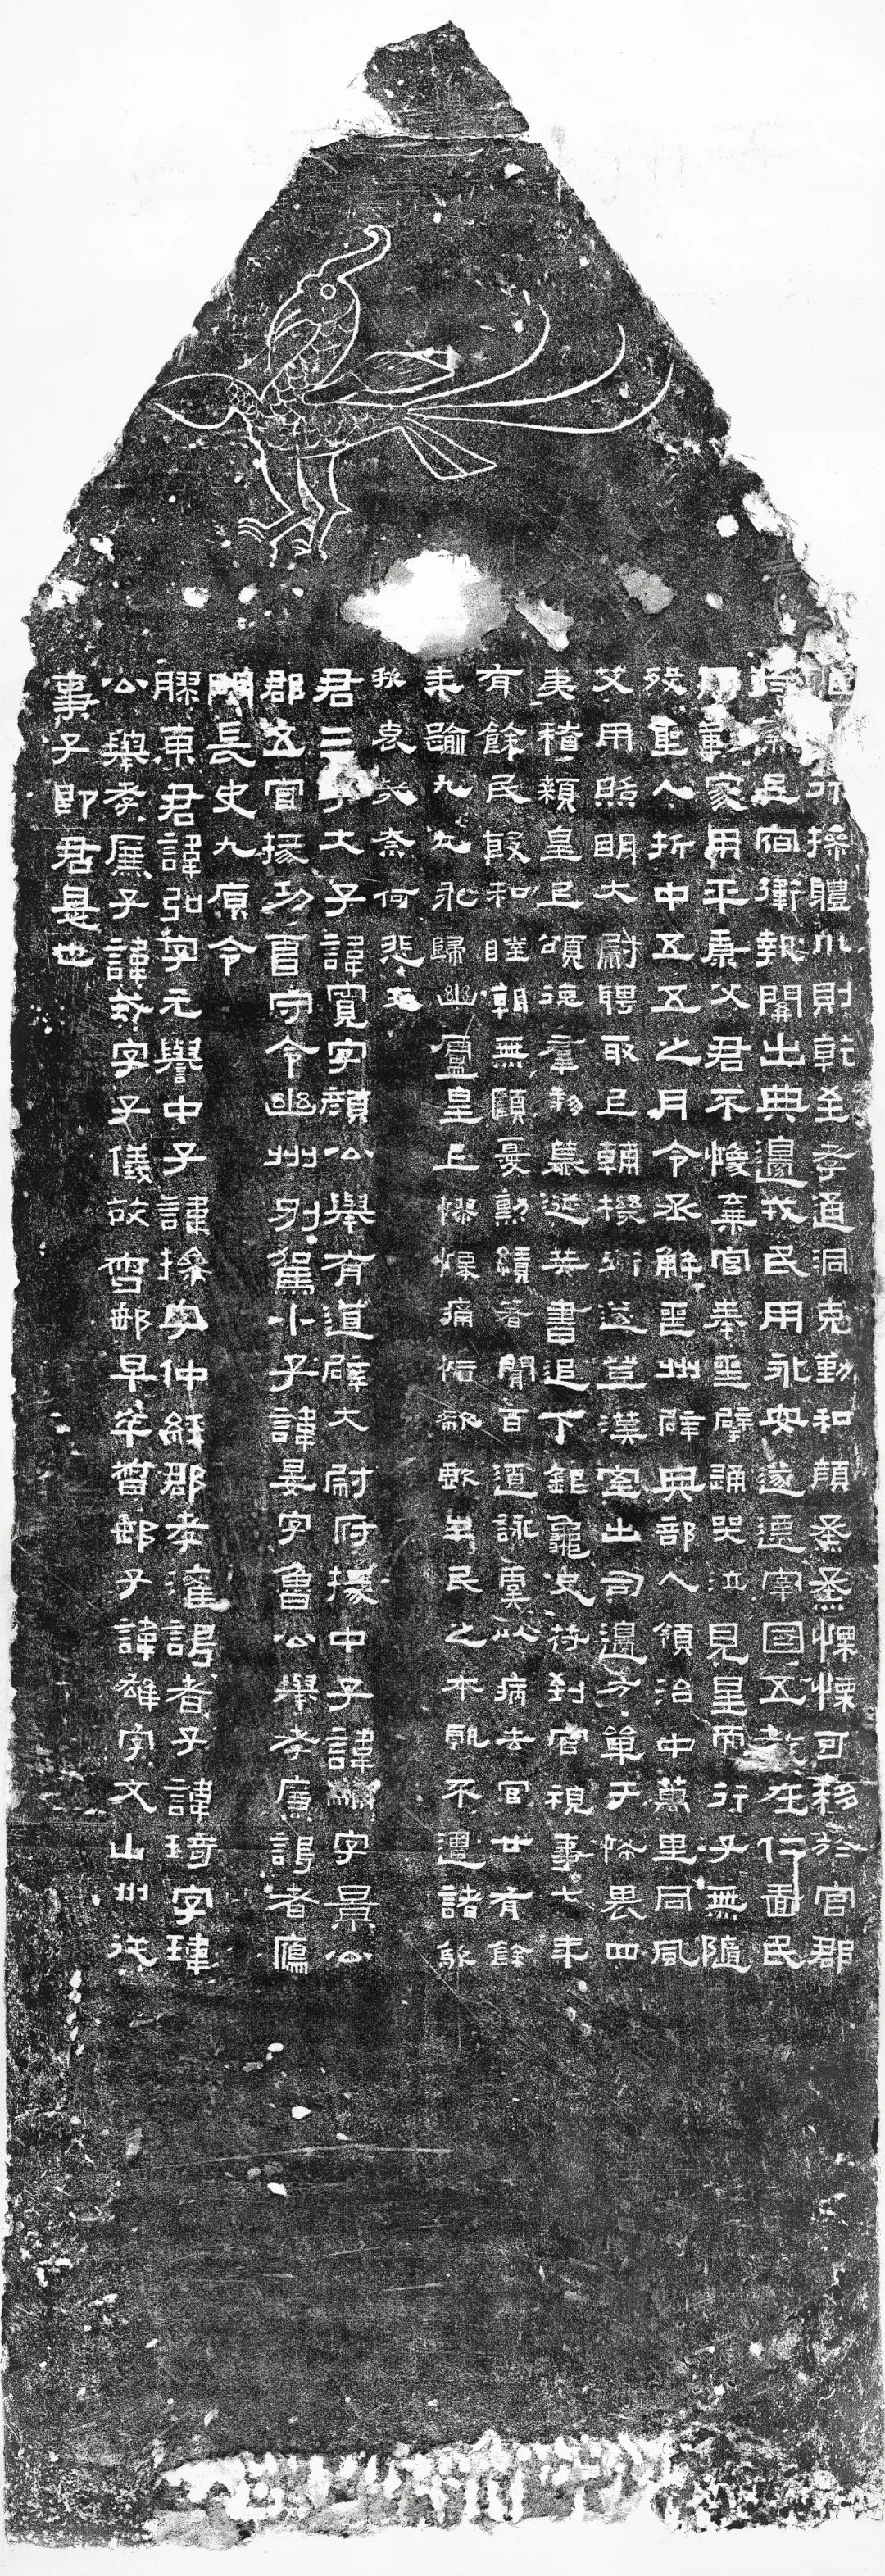 行操體川則乾至孝通洞克勤和顏烝烝慄慄可移於官郡
足宿衛報關出典邊戎民用永安遂遷宰國五教在仁嗇民
用章家用平康父君不豫棄官奉喪擗踊哭泣見星而行子無隨
歿聖人折中五五之月令丞解喪州辟典部入領治中萬里同風
艾用照明大尉聘取以輔機衡遂登漢室出司邊方單于怖畏四
夷稽顙皇上頌德羣黎慕涎策書追下銀龜史符到官視事七年
有餘民殷和睦朝無顧憂勳績著聞百遼詠虞以病去官廿有餘
年踰九九永歸幽廬皇上憀慄痛惜欷歔生民之本孰不遭諸
哀奈何悲夫
君三子大子諱寬字顏公舉有道辟大尉府掾中子諱黼字景公
郡五官掾功曹守令幽州別駕小子諱晏字魯公舉孝廉謁者鴈
門長史九原令
膠東君諱弘字元譽中子諱操字仲經郡孝灌謁者子諱琦字瑋
公舉孝廉子諱字子儀故督郵早卒督郵子諱雄字文山州從
事子即君是也